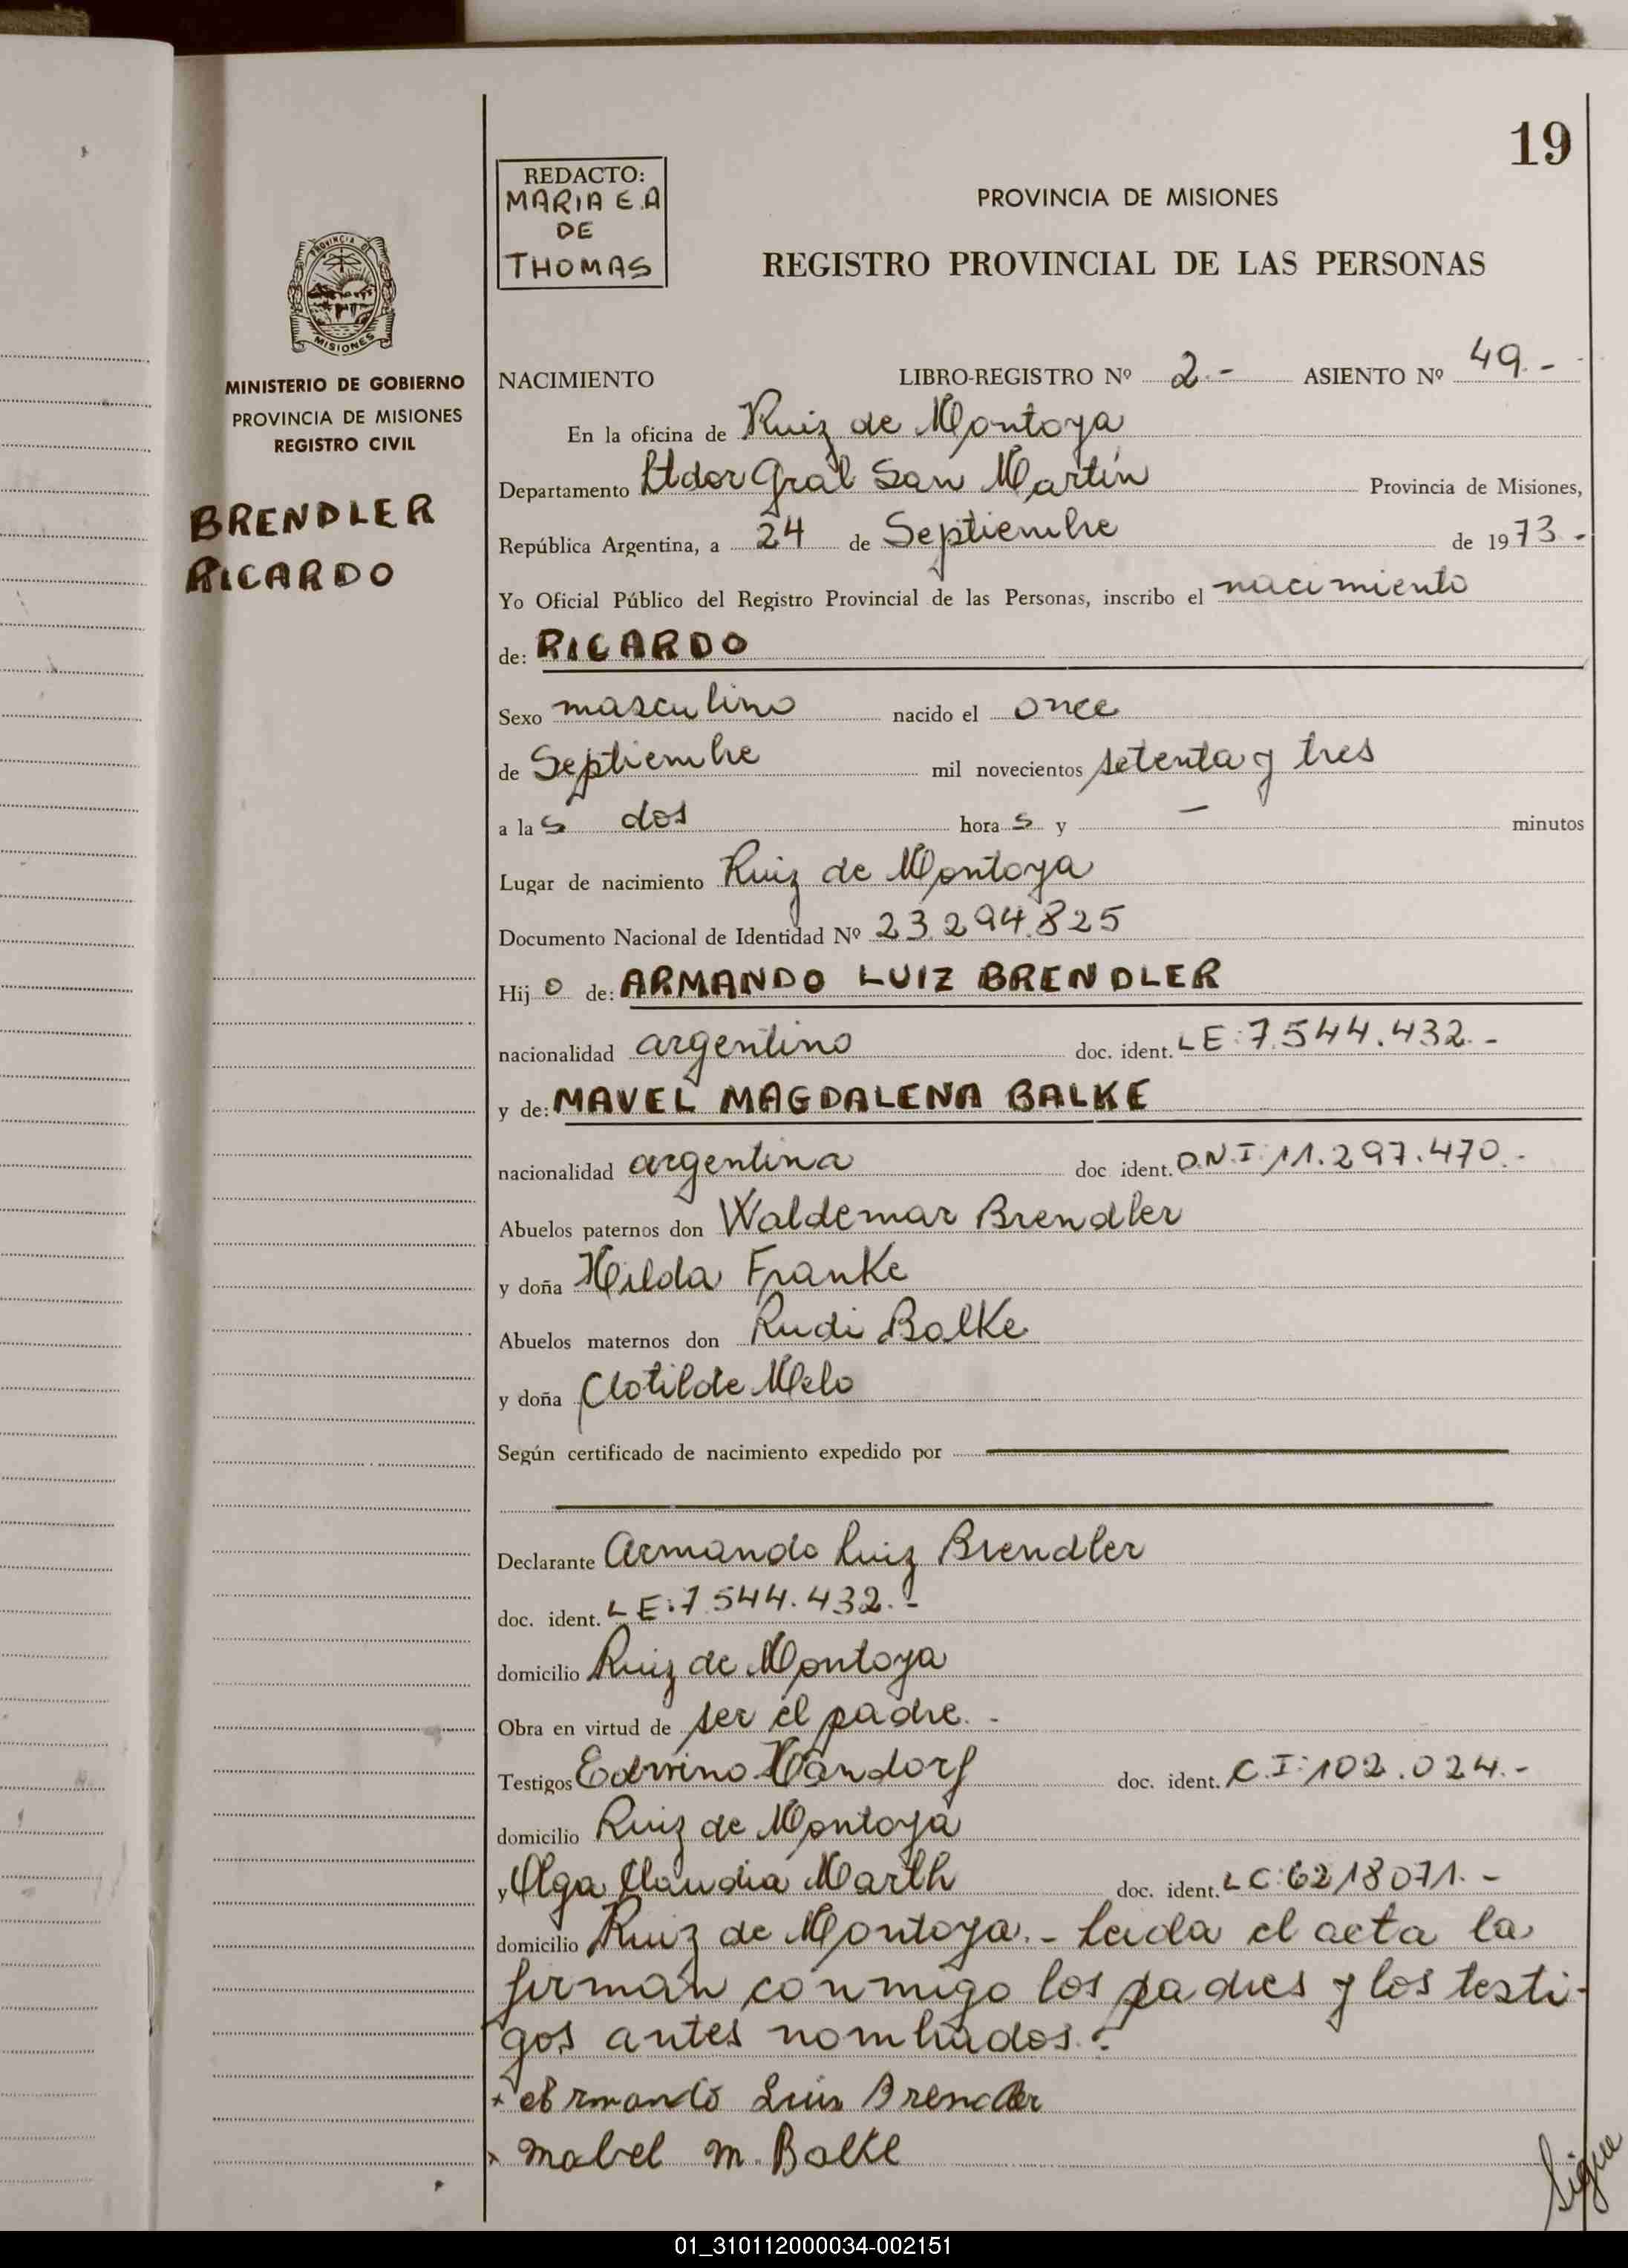 19
REDACTO:
MARIA E.A
DE
THOMAS
PROVINCIA DE MISIONES
REGISTRO PROVINCIAL DE LAS PERSONAS
PROVINCIA DE
MISIONES
MINISTERIO DE GOBIERNO
PROVINCIA DE MISIONES
REGISTRO CIVIL
BRENDLER
RICARDO
NACIMIENTO LIBRO-REGISTRO Nº 2.- ASIENTO Nº 49.-
En la oficina de Ruiz de Montoya
Departamento Ltdor Gral San Martín Provincia de Misiones,
República Argentina, a 24 de Septiembre de 1973-
Yo Oficial Público del Registro Provincial de las Personas, inscribo el nacimiento
de: RICARDO
Sexo masculino nacido el once
de Septiembre mil novecientos setenta y tres
a las dos horas y — minutos
Lugar de nacimiento Ruiz de Montoya
Documento Nacional de Identidad Nº 23.294.825
Hijo de: ARMANDO LUIZ BRENDLER
nacionalidad argentino doc. ident. LE:7.544.432.-
y de: MAVEL MAGDALENA BALKE
nacionalidad argentina doc ident. D.N.I:11.297.470.-
Abuelos paternos don Waldemar Brendler
y doña Hilda Franke
Abuelos maternos don Rudi Balke
y doña Clotilde Melo
Según certificado de nacimiento expedido por
Declarante Armando Luiz Brendler
doc. ident. LE:7.544.432.-
domicilio Ruiz de Montoya
Obra en virtud de ser el padre.-
Testigos Edwino Handorf doc. ident. C.I:102.024.-
domicilio Ruiz de Montoya
y Olga Claudia Marth doc. ident. LC:6218071.-
domicilio Ruiz de Montoya.- Leida el acta la
firman conmigo los padres y los testi-
gos antes nombrados.-
x Armando Luis Brendler
x Mabel M. Balke
Sigue
01_310112000034-002151